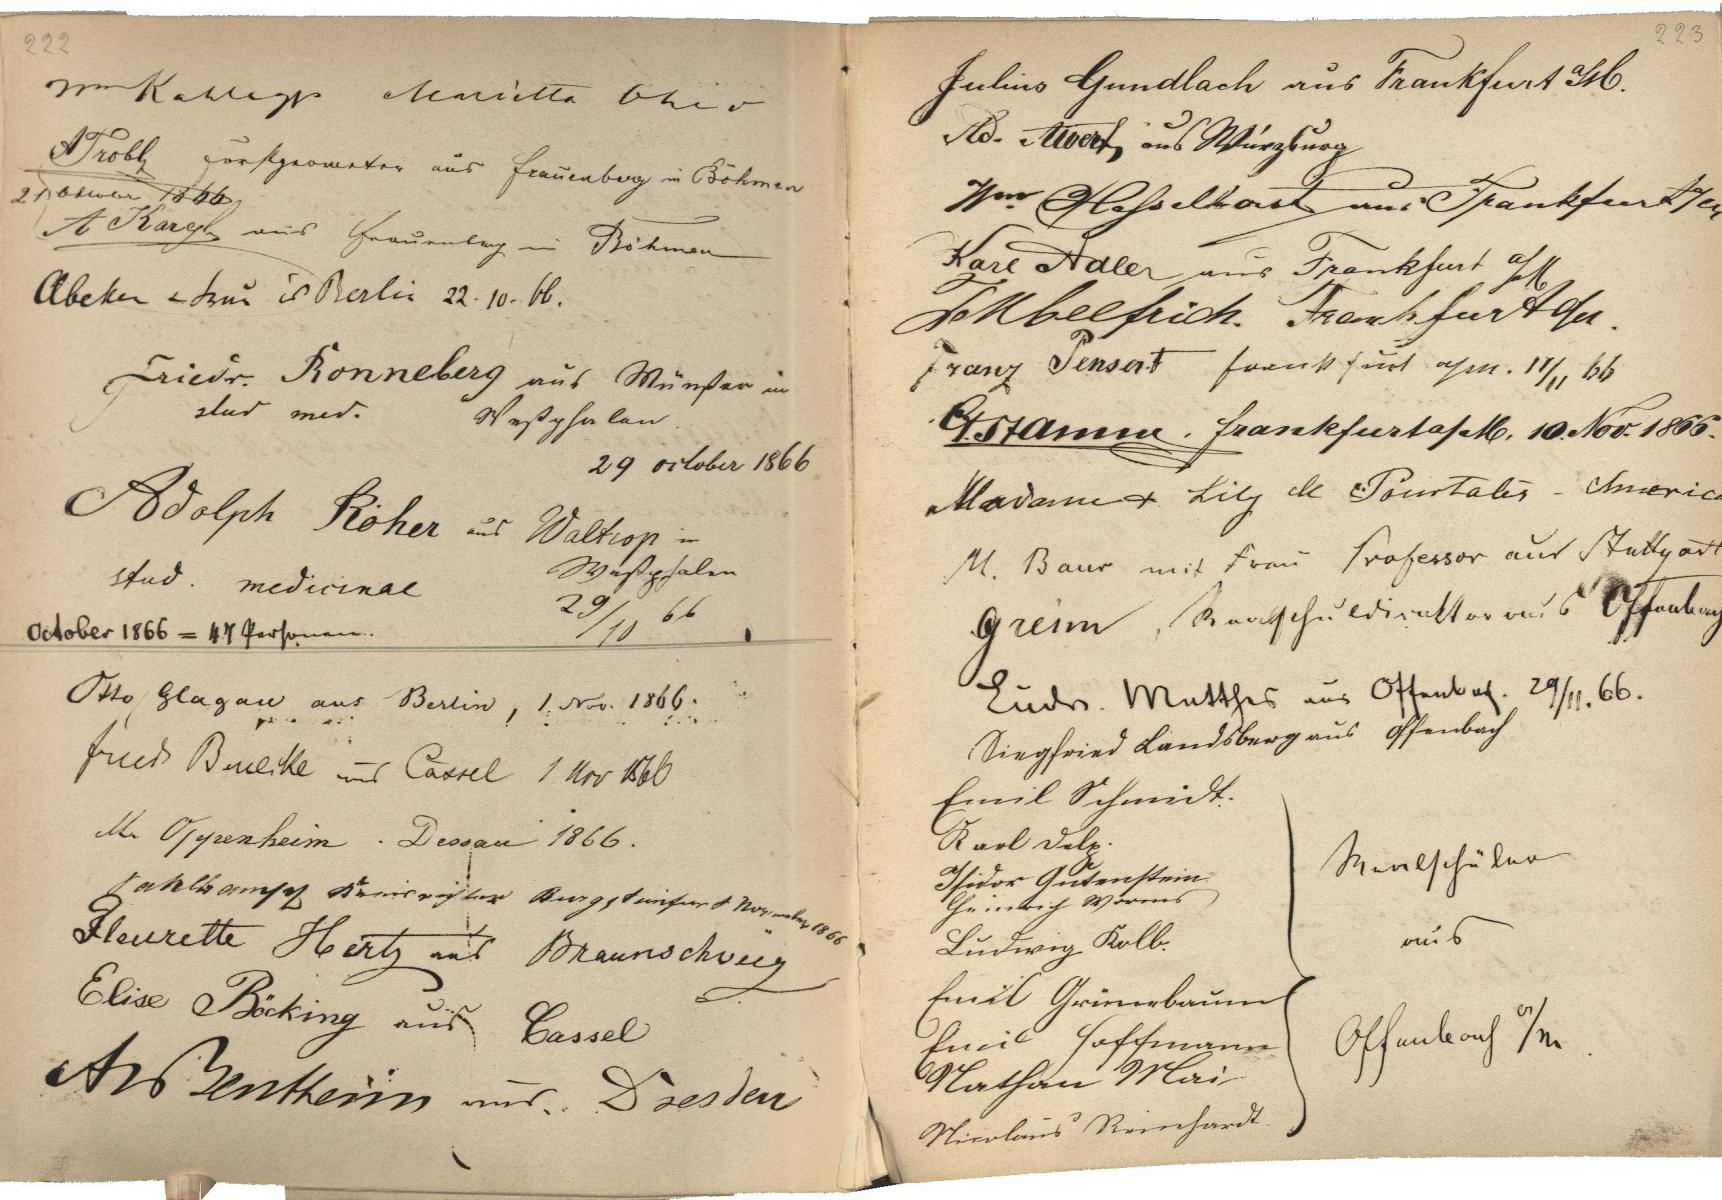 222
Marietta Ohio
aus Frauenberg in Böhmen
1866
aus Frauenberg in Böhmen
Abeken Berlin 22. 10. 66.
Friedr. Ronneberg aus Münster in
stud med. Westphalen
29 october 1866
Adolph Röher aus Waltrop in
Westphalen
stud. medicinae
29/10 66
October 1866 = 47 Personen.
Otto Glagau aus Berlin, 1. Nov. 1866.
aus Cassel 1 Nov 1866
M. Oppenheim . Dessau 1866.
Kreisrichter Burgsteinfurt November 1866
Fleurette Hertz aus Braunschweig
Elise Böcking aus Cassel
aus Dresden
223
Julius Gundlach aus Frankfurt a/M.
Ad. aus Würzburg
Wm Hesselhorst aus Frankfurt
Karl Adler aus Frankfurt a/M
Frankfurt a/M.
Franz Frankfurt a/M. 11/11 66
Stamm. Frankfurt a/M. 10. Nov. 1866.
Madame & Lily de Pourtalès - America
M. Baur mit Frau Professor aus Stuttgart
Greim, Realschuldirector aus Offenbach
Ludw. Matthes aus Offenbach. 29/11. 66.
Siegfried Landsberg aus Offenbach
Emil Schmidt.
Karl Delp.
Isidor Gutenstein
Heinrich Worms
Ludwig Kolb.
Emil Grünebaum
Emil Hoffmann
Nathan Mai
Nicolaus Reinhardt.
Realschüler
aus
Offenbach a/M.